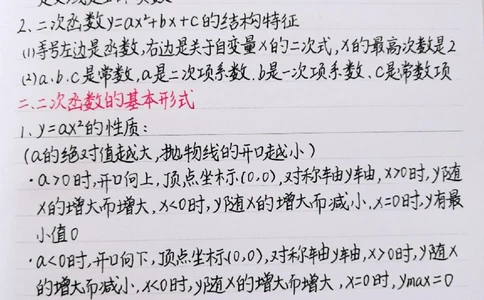 2.二次函数y=ax²+bx+c的结构特征
(1)等号左边是函数,右边是关于自变量x的二次式,x的最高次数是2
(2)a.b.c是常数,a是二次项系数.b是一次项系数.c是常数项
二.二次函数的基本形式
1.y=ax²的性质:
(a的绝对值越大,抛物线的开口越小)
·a>0时,开口向上,顶点坐标(0,0),对称轴由y轴,x>0时,y随
x的增大而增大,x<0时,y随x的增大而减小.x=0时,y有最
小值0
·a<0时,开口向下,顶点坐标(0,0),对称轴由y轴,x>0时,y随x
的增大而减小,x<0时,y随x的增大而增大,x=0时,ymax=0